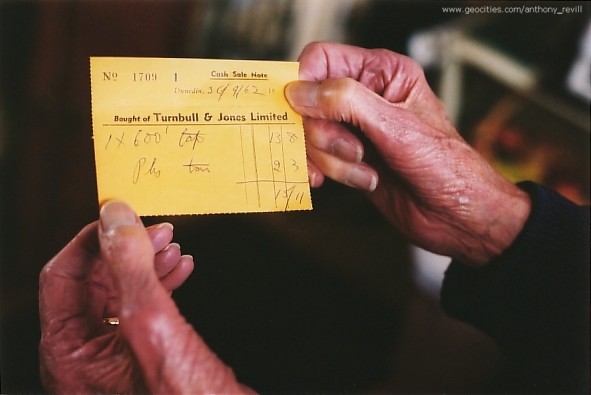 www.geocities.com/anthony_revill
No 1709 1 Cash Sale Note
Dunedin, 30/9/62 19
Bought of Turnbull & Jones Limited
1 X 600' tape 13 8
Plus tax 2 3
15/11